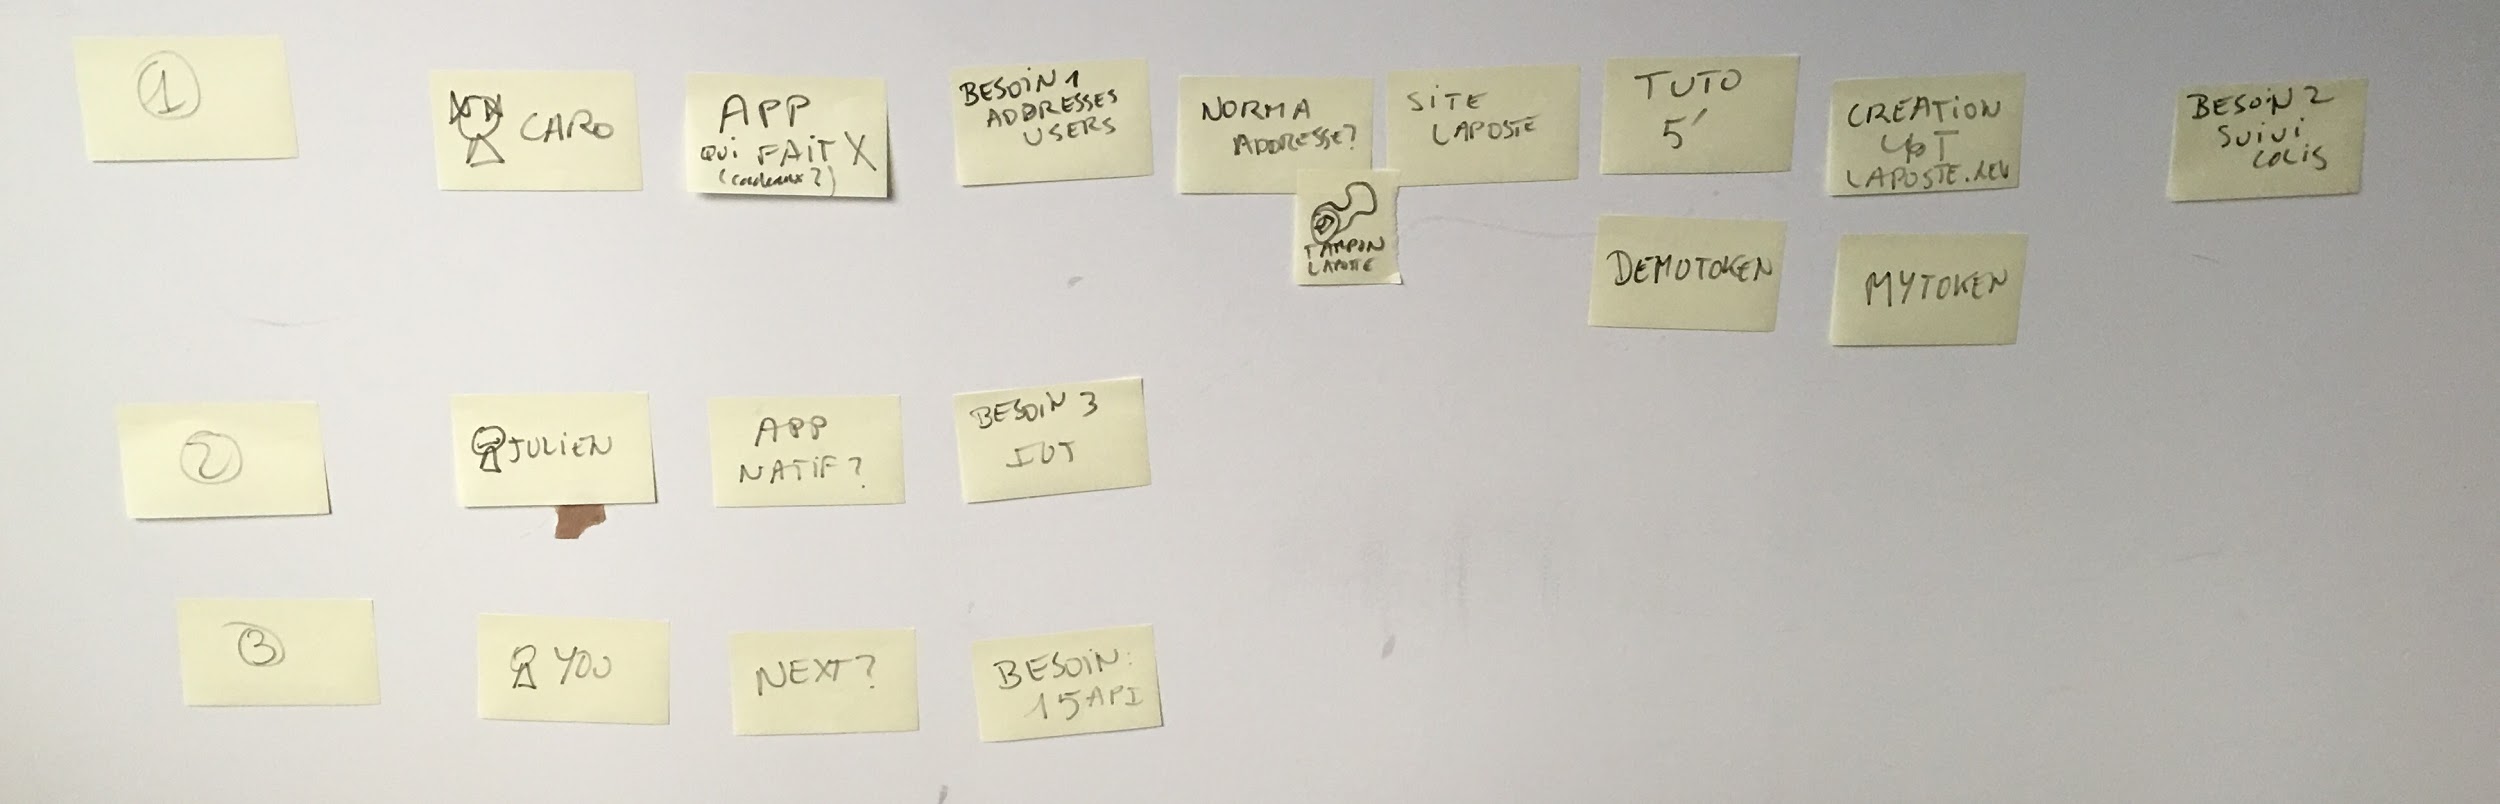 1
CARO
APP
QUI FAIT X
(cadeaux?)
BESOIN 1
ADDRESSES
USERS
NORMA
ADDRESSE?
SITE
LAPOSTE
TAMPON
LAPOSTE
TUTO
5'
DEMOTOKEN
CREATION
LAPOSTE.DEV
MYTOKEN
BESOIN 2
SUIVI
COLIS
2
JULIEN
APP
NATIF?
BESOIN 3
IOT
3
YOU
NEXT?
BESOIN:
15 API